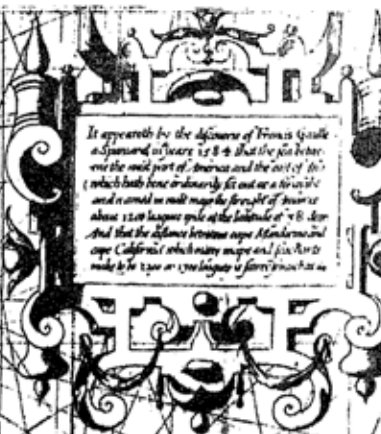 It appeareth by the discourse of Francis Gaulle
a Spaniard, in yeare 1584 that the sea betwe-
ene the west part of America and the east of
(which hath bene ordinarily set out as a
and named in most maps the streight of
above 1200 leagues wyde at the latitude of 38
And that the distance betweene cape Mendocino and
cape California which many maps and sea charts
make to be 1200 or 1300 leagues is scarce so much as